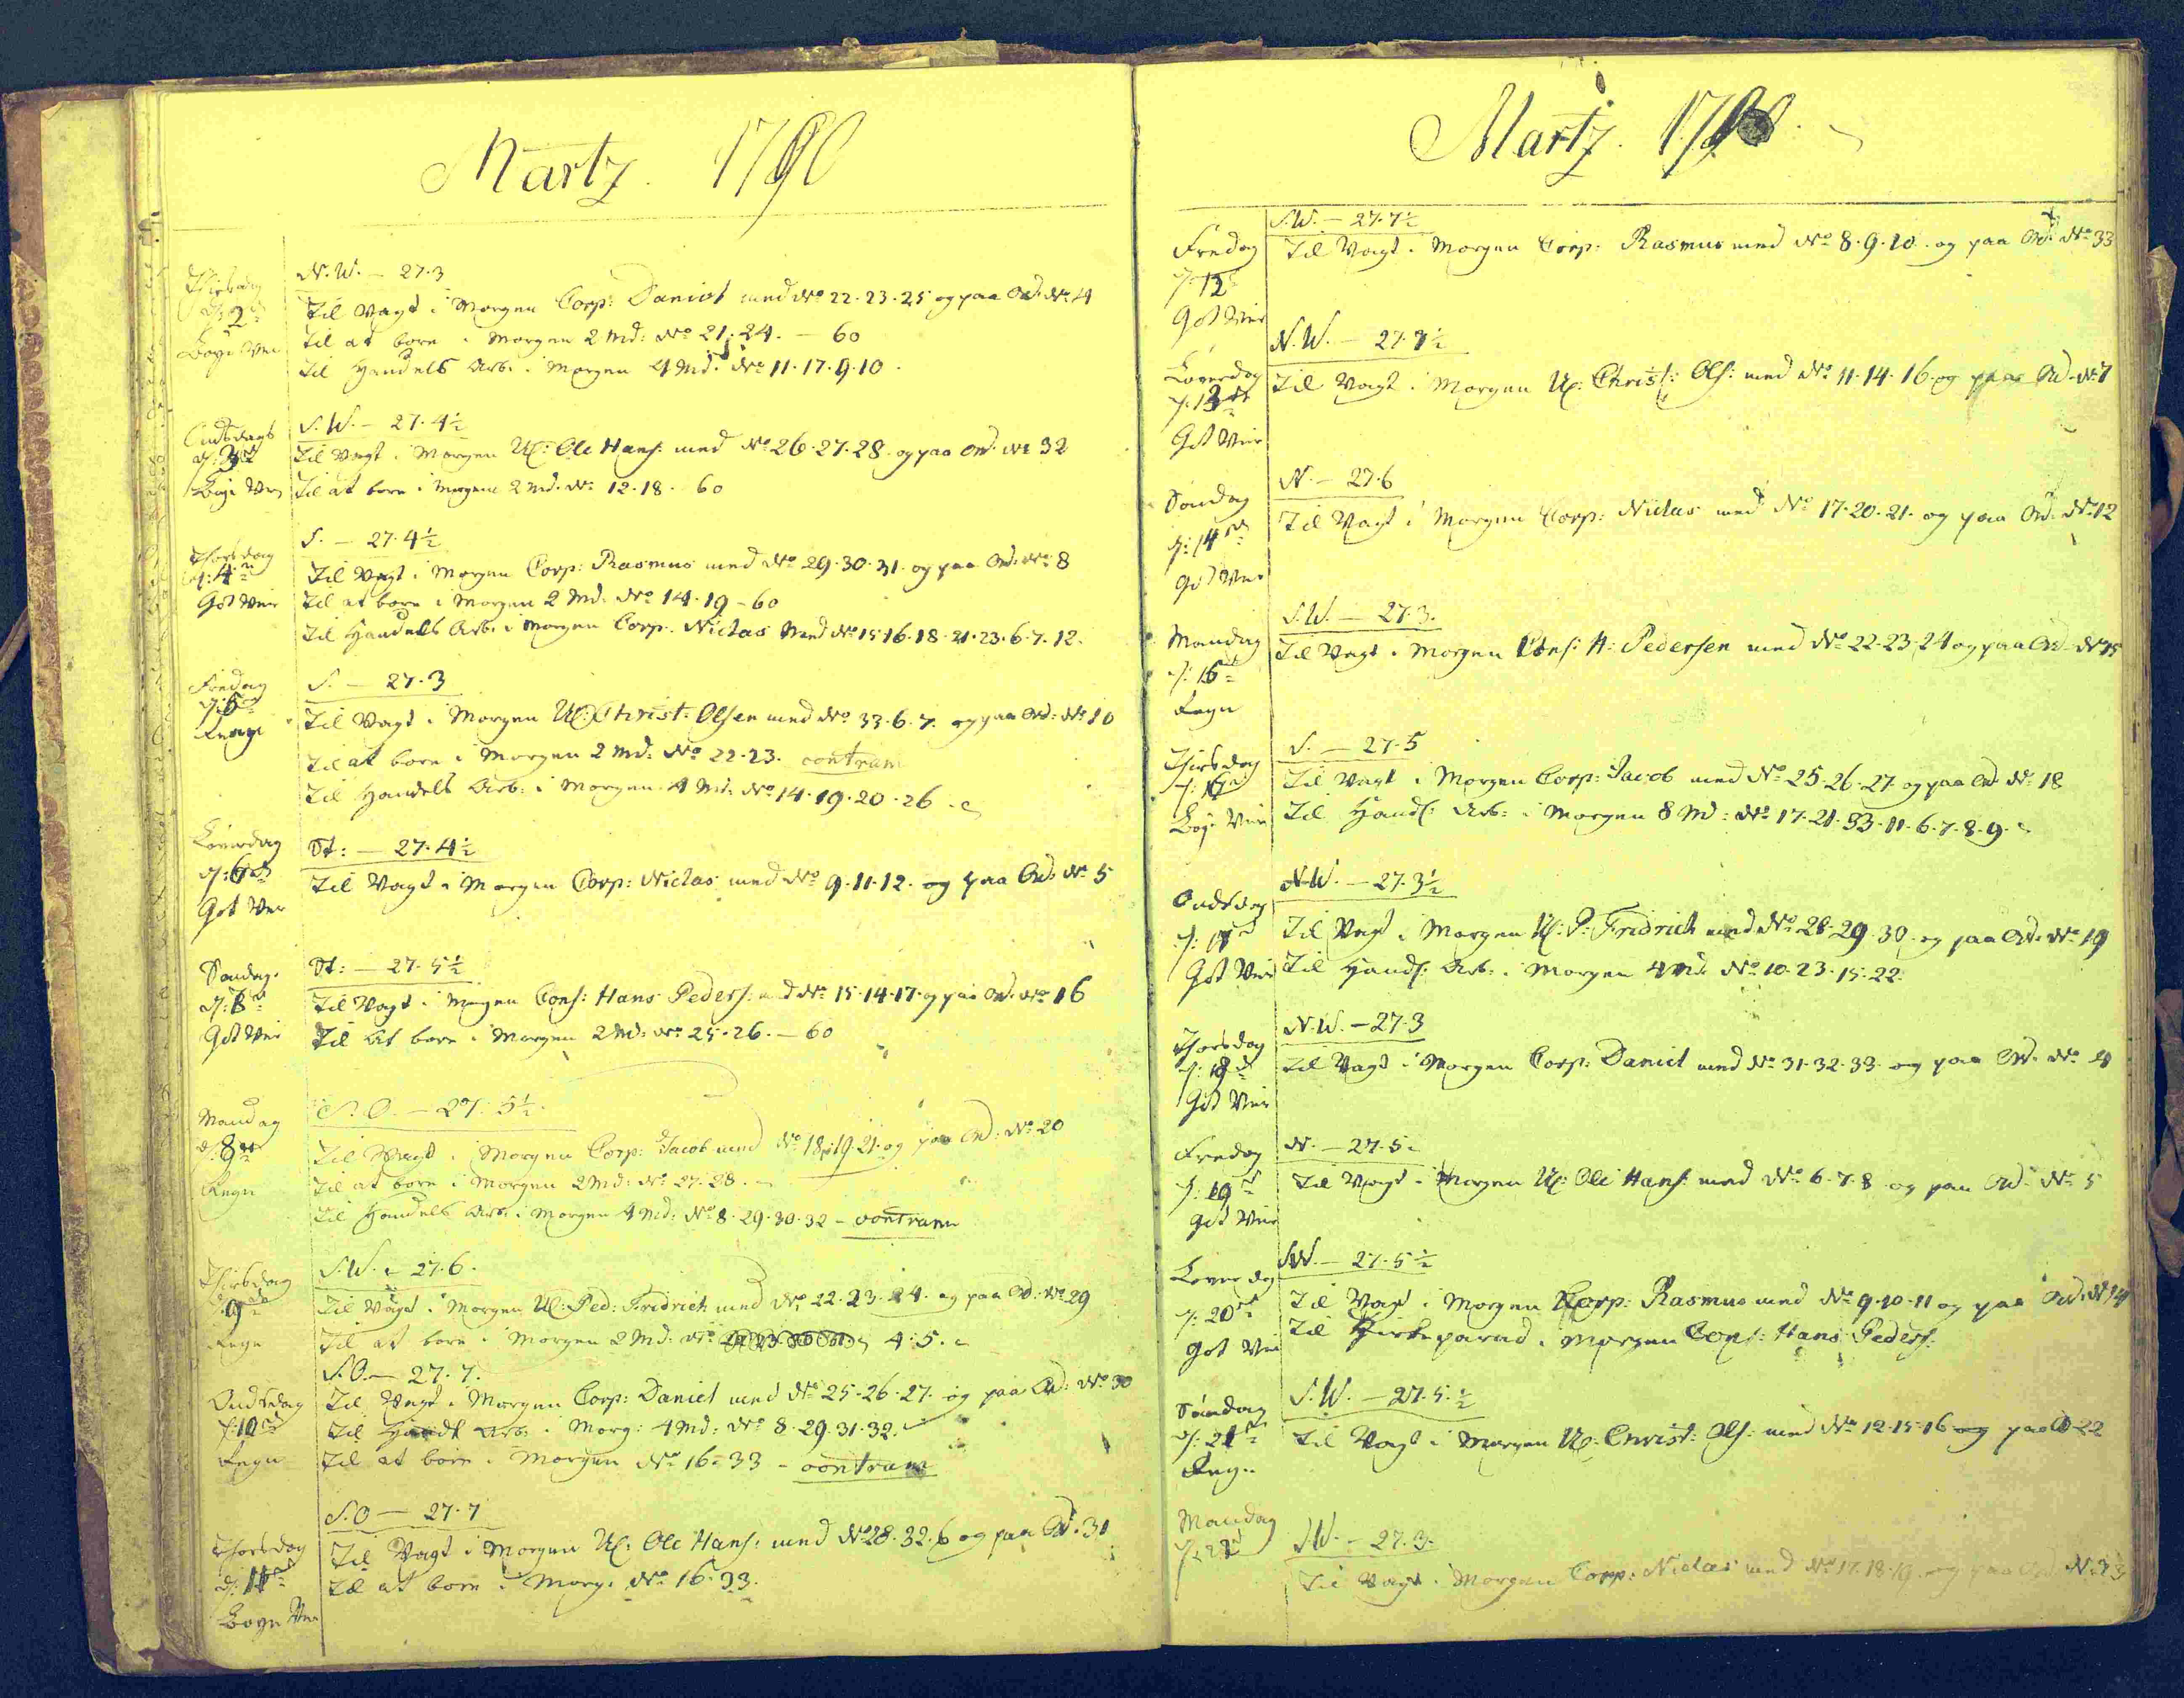 Martz. 1790
Tirsdag
d: 2d
Bøye Veir
N.W. — 27.3
Til Vagt i Morgen Corp: Daniel med No 22.23.25 og paa Ord. No 4
Til at bore i Morgen 2 Md: No 21.24. — 60
Til Handels Arb. i Morgen 4 Md. No 11.17.9.10.
Onsdags
d: 3d
Bøye Veir
S.W. — 27.4½
Til Vagt i Morgen U: Ole Hans: med No 26.27.28. og paa Ord. No 32
Til at bore i Morgen 2 Md. No 12.18. 60
Thorsdag
d: 4de
Got Veir
S. — 27.4½
Til Vagt i Morgen Corp: Rasmus med No 29.30.31. og paa Ord. No 8
Til at bore i Morgen 2 Md: No 14.19 — 60
Til Handels Arb. i Morgen Corp. Niclas med No 15.16.18.21.23.6.7.12.
Fredag
S. — 27.3
Til Vagt i Morgen U: Christ: Olsen med No 33.6.7. og paa Ord: No 10
Til at bore i Morgen 2 Md: No 22.23. contram
Til Handels Arb: i Morgen 4 Md: No 14.19.20.26.
Løverdag
d: 6de
Got Veir
St: — 27.4½
Til Vagt i Morgen Corp: Niclas med No 9.11.12. og paa Ord. No 5
Søndag.
Got Veir
St: — 27.5½
Til Vagt i Morgen Cons: Hans Peders: med No 15.14.17. og paa Ord. No 16
Til at bore i Morgen 2 Md: No 25.26. — 60
Mandag
d: 8de
Regn
S.O. — 27.5½
Til Vagt i Morgen Corp: Jacob med No 18.19.21. og paa Ord: No 20
Til at bore i Morgen 2 Md: No 27.28.
Til Handels Arb. i Morgen 4 Md: No 8.29.30.32 — contram
Tirsdag
d: 9de
Regn
S.W. — 27.6.
Til Vagt i Morgen U: Ped: Fredrich med No 22.23.24. og paa Ord: No 29
Til at bore i Morgen 2 Md: No 4.5.
Onsdag
d: 10de
Regn
S.O. — 27.7.
Til Vagt i Morgen Corp: Daniel med No 25.26.27. og paa Ord: No 30
Til Handl Arb: i Morg: 4 Md: No 8.29.31.32.
Til at bore i Morgen No 16.33 — contram
Thorsdag
d: 11te
Bøye Veir
S.O — 27.7
Til Vagt i Morgen U: Ole Hans: med No 28.32.6 og paa Ord. 31
Til at bore i Morg. No 16.33.
Martz. 1790.
Fredag
d: 12te
Got Veir
S.W. — 27.7½
Til Vagt i Morgen Corp: Rasmus med No 8.9.10. og paa Ord. No 33
Løverdag
d: 13de
Got Veir
N.W. — 27.7½
Til Vagt i Morgen U: Christ: Ols: med No 11.14.16. og paa Ord. No 7
Søndag
d: 14de
Got Veir
N. — 27.6
Til Vagt i Morgen Corp: Niclas med No 17.20.21. og paa Ord. No 12
Mandag
Regn
S.W. — 27.3.
Til Vagt i Morgen Cons: H: Pedersen med No 22.23.24 og paa Ord. No 15
Tirsdag
Bøye Veir
S. — 27.5
Til Vagt i Morgen Corp: Jacob med No 25.26.27. og paa Ord No 18
Til Handl: Arb: i Morgen 8 Md: No 17.21.33.11.6.7.8.9.
Onsdag
Got Veir
N.W. — 27.3½
Til Vagt i Morgen U: P: Fredrich med No 28.29.30. og paa Ord. No 19
Til Handl: Arb: i Morgen 4 Md. No 10.23.15.22.
Thorsdag
d: 18de
Got Veir
N.W. — 27.3
Til Vagt i Morgen Corp: Daniel med No 31.32.33. og paa Ord. No 4
Fredag
d: 19de
Got Veir
N. — 27.5.
Til Vagt i Morgen U: Ole Hans: med No 6.7.8 og paa Ord. No 5
Løverdag
d: 20de
Got Veir
W. — 27.5½
Til Vagt i Morgen Corp: Rasmus med No 9.10.11 og paa Ord. No 14
Til Kirkeparad i Morgen Cons: Hans Peders.
Søndag
d: 21de
Regn
S.W. — 27.5.½
Til Vagt i Morgen U: Christ: Ols: med No 12.15.16 og paa O 22
Mandag
d: 22d
W. — 27.3.
Til Vagt i Morgen Corp: Niclas med No 17.18.19. og paa Ord. N. 23